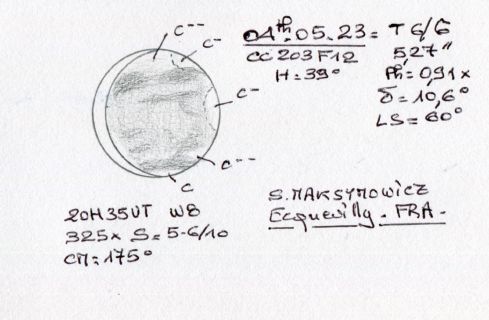 C--
C-
04th.05.23 = T 6/6
CC 203 F12
5,27"
H = 39°
Ph = 0,91 x
δ = 10,6°
LS = 60°
C-
C--
C
20H35UT W8
325x S = 5-6/10
CM = 175°
S. MAKSYMOWICZ
Ecquevilly - FRA -